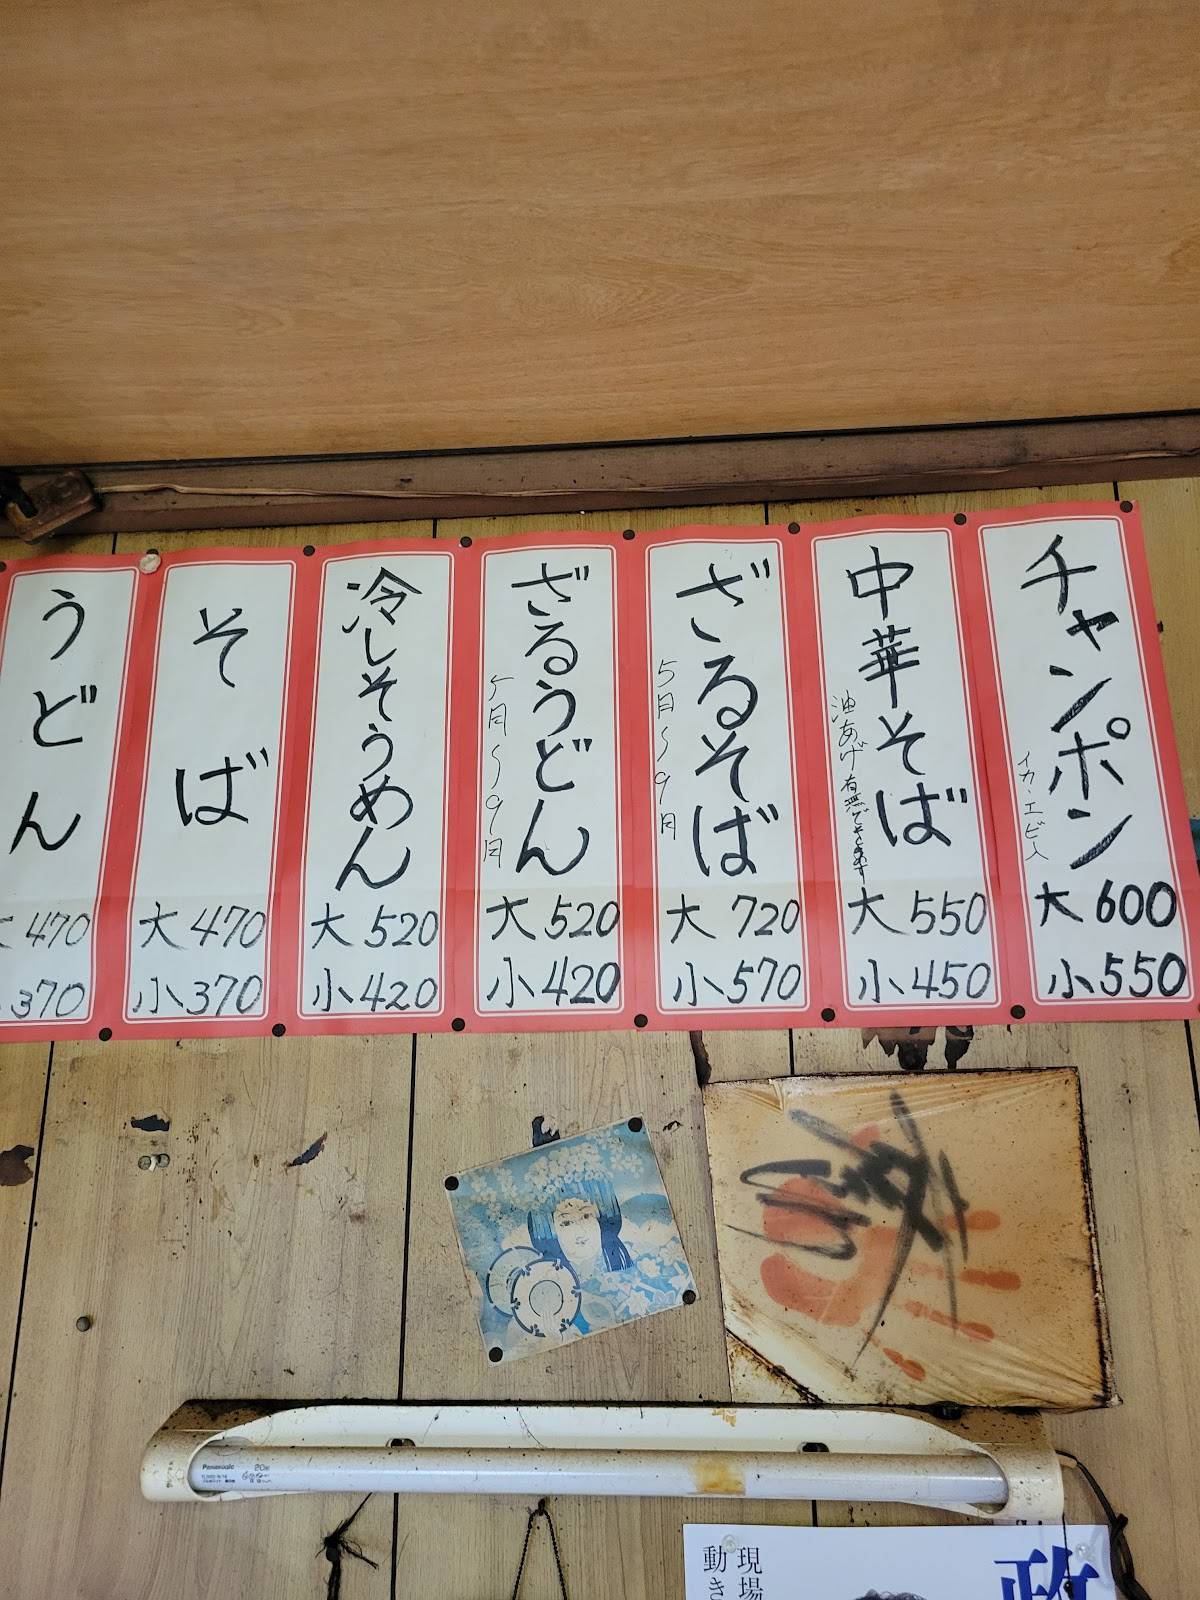 チャンポン
イカ・エビ入
大 600
小 550
中華そば
油あげ有無できます
大 550
小 450
ざるそば
5月〜9月
大 720
小 570
ざるうどん
5月〜9月
大 520
小 420
冷しそうめん
大 520
小 420
そば
大 470
小 370
うどん
大 470
小 370
Panasonic
現場
動き
政